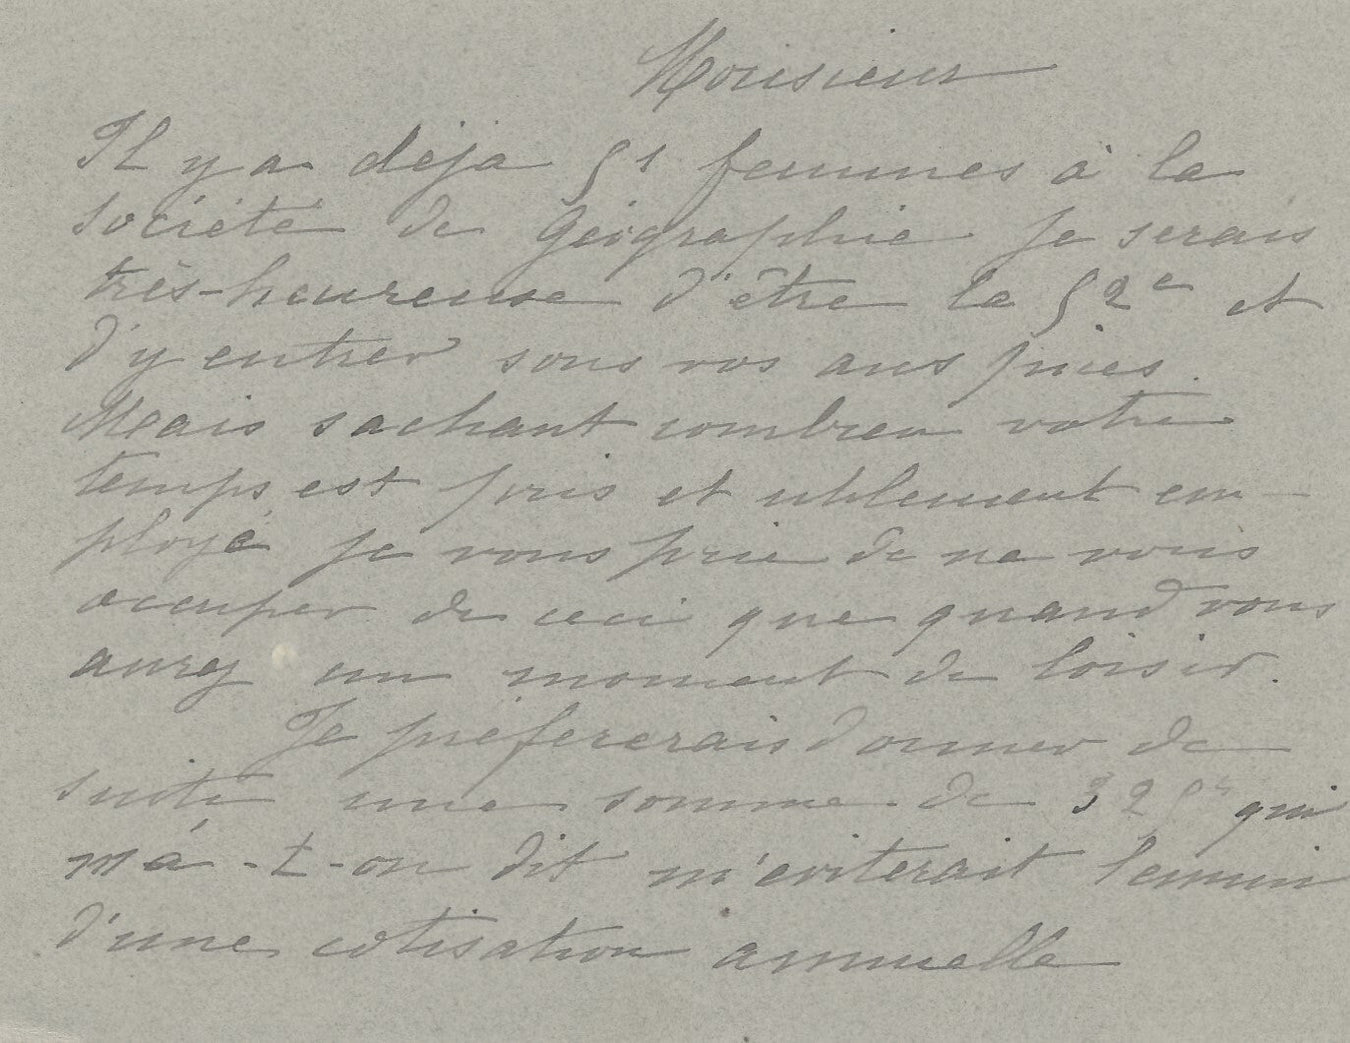 Monsieur
Il y a déja 51 femmes à la
Société de Géographie Je serais
très-heureuse d'être la 52e et
d'y entrer sous vos auspices.
Mais sachant combien votre
temps est pris et utilement em-
ployé je vous prie de ne vous
occuper de ceci que quand vous
aurez un moment de loisir.
Je préfererais donner de
suite une somme de 325fr qui
m'a-t-on dit m'eviterait l'ennui
d'une cotisation annuelle